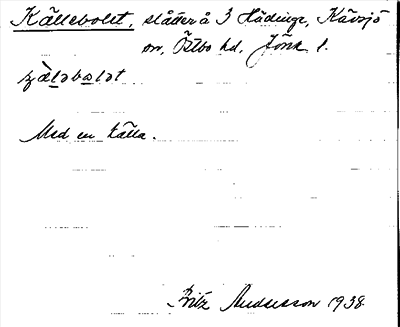 Källebolet, slåtter å 3 Hädinge, Kävsjö
sn, Östbo hd, Jönk l.
Med en källa.
Fritz Andersson 1938